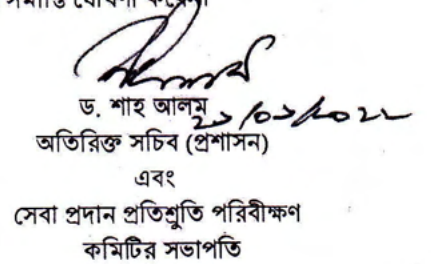 সমাপ্তি ঘোষণা করেন।
ড. শাহ আলম
অতিরিক্ত সচিব (প্রশাসন)
এবং
সেবা প্রদান প্রতিশ্রুতি পরিবীক্ষণ
কমিটির সভাপতি